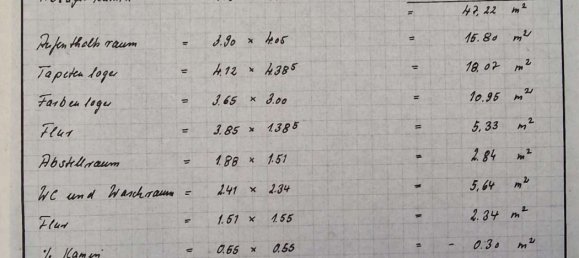 = 47,22 m²
Aufenthaltsraum = 3.90 × 4.05 = 15.80 m²
Tapetenlager = 4.12 × 4.38⁵ = 18.07 m²
Farbenlager = 3.65 × 3.00 = 10.95 m²
Flur = 3.85 × 1.38⁵ = 5,33 m²
Abstellraum = 1.88 × 1.51 = 2.84 m²
WC und Waschraum = 2.41 × 2.34 = 5,64 m²
Flur = 1.51 × 1.55 = 2.34 m²
% Kamin = 0.55 × 0.55 = - 0.30 m²